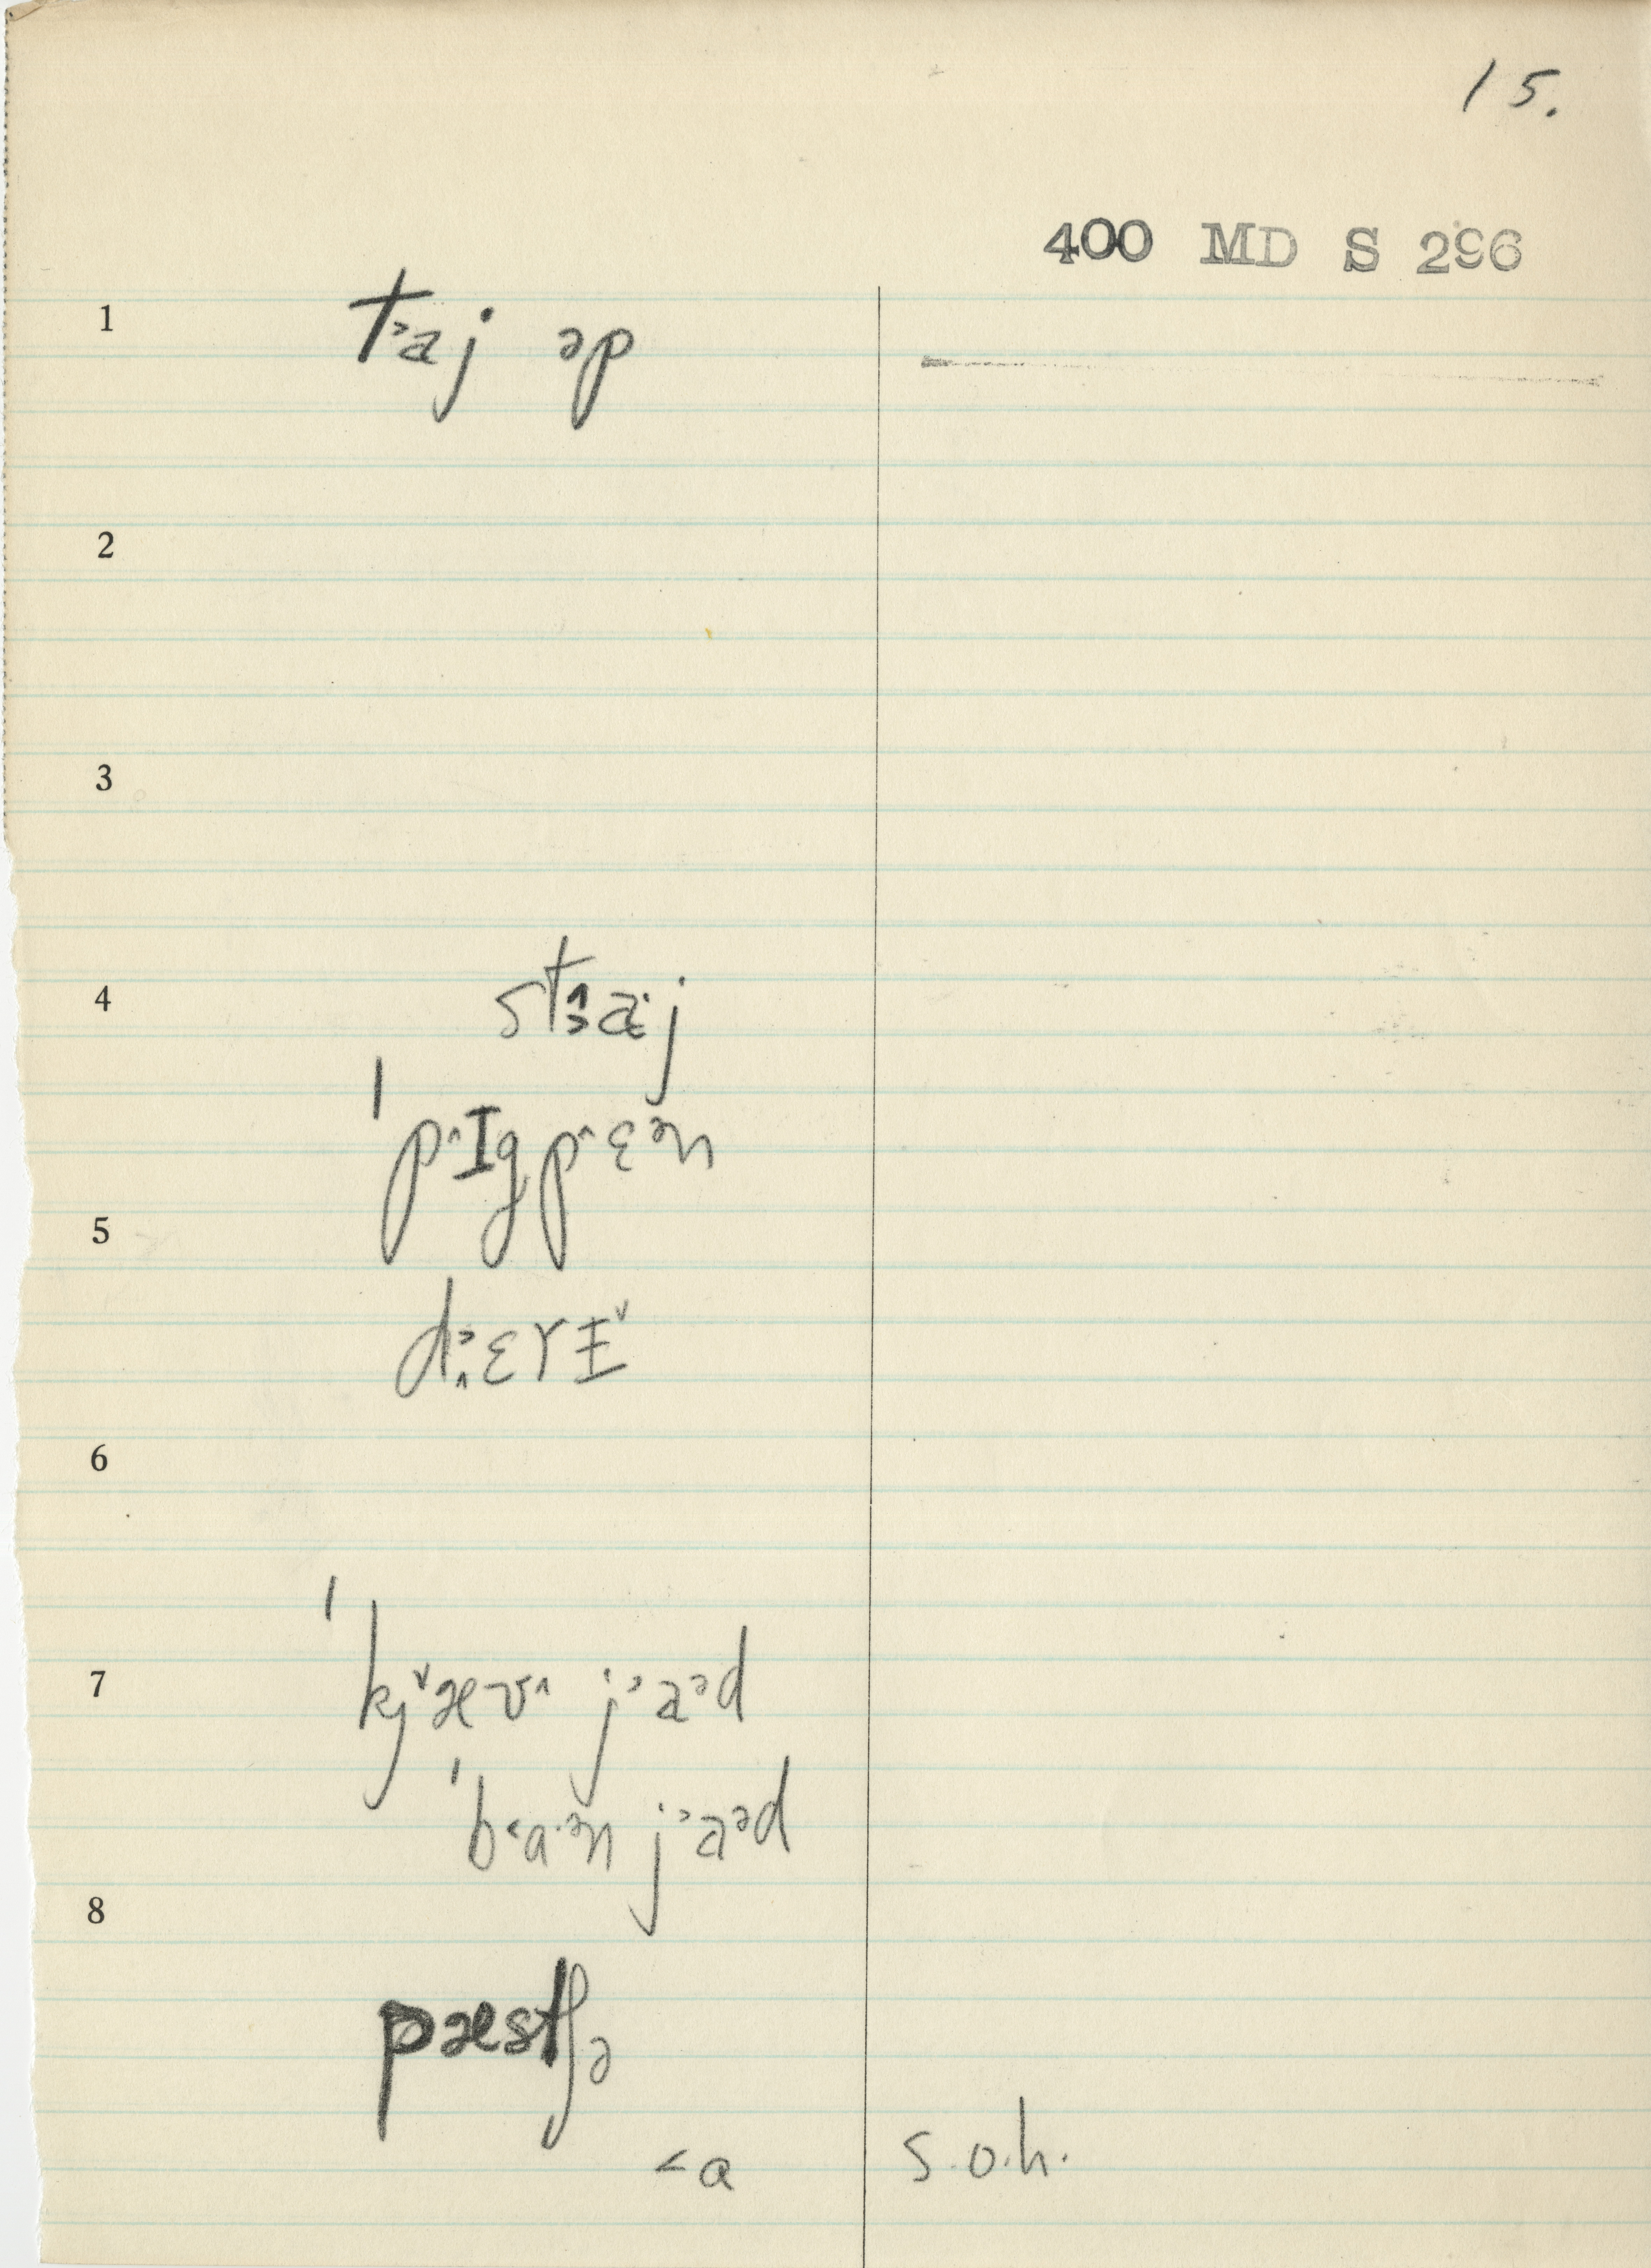 15.
400 MD S 296
1 t˃aj əp
2
3
4 st˄˃a̵j
ˈp˄Igp˄ɛᵊn
5
d˃˄ɛrɪ̵˅
6
ˈkj˅æʊ˄ j˃aᵊd
7
ˈb˂ɑ·ᵊn j˃aᵊd
8
pæstʃə
˂ɑ s.o.h.